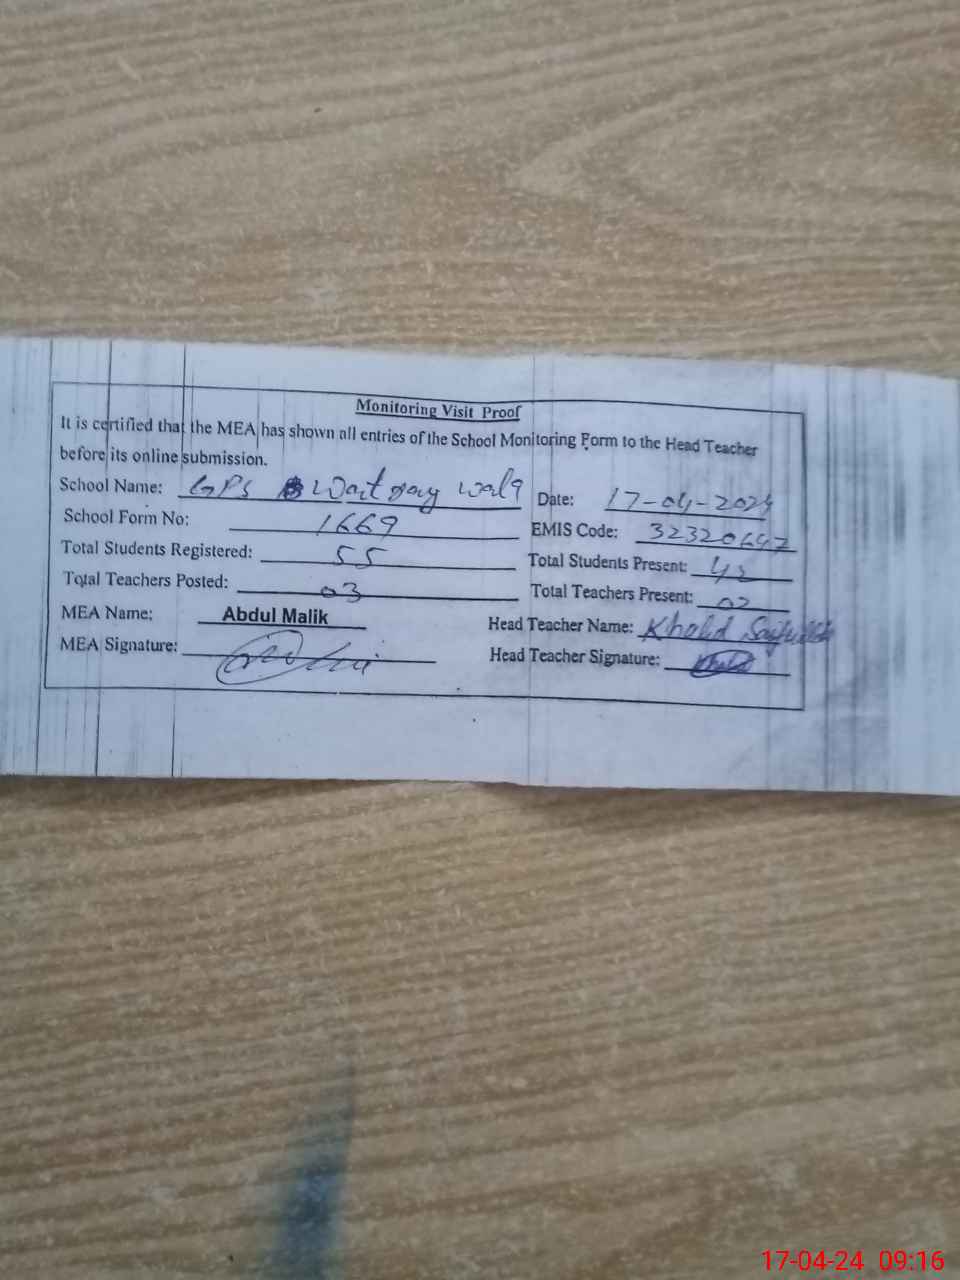 Monitoring Visit Proof
It is certified that the MEA has shown all entries of the School Monitoring Form to the Head Teacher
before its online submission.
School Name: GPS Wort gary wala Date: 17-04-2024
School Form No: 1669 EMIS Code: 32320647
Total Students Registered: 55 Total Students Present:
Total Teachers Posted: 03 Total Teachers Present:
MEA Name: Abdul Malik Head Teacher Name: Khalid Saifullah
MEA Signature: Head Teacher Signature:
17-04-24 09:16